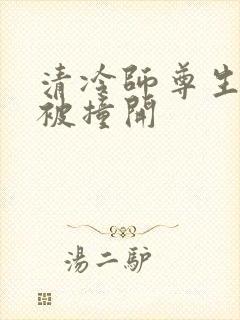 清冷師尊生
被撞開
湯二驴